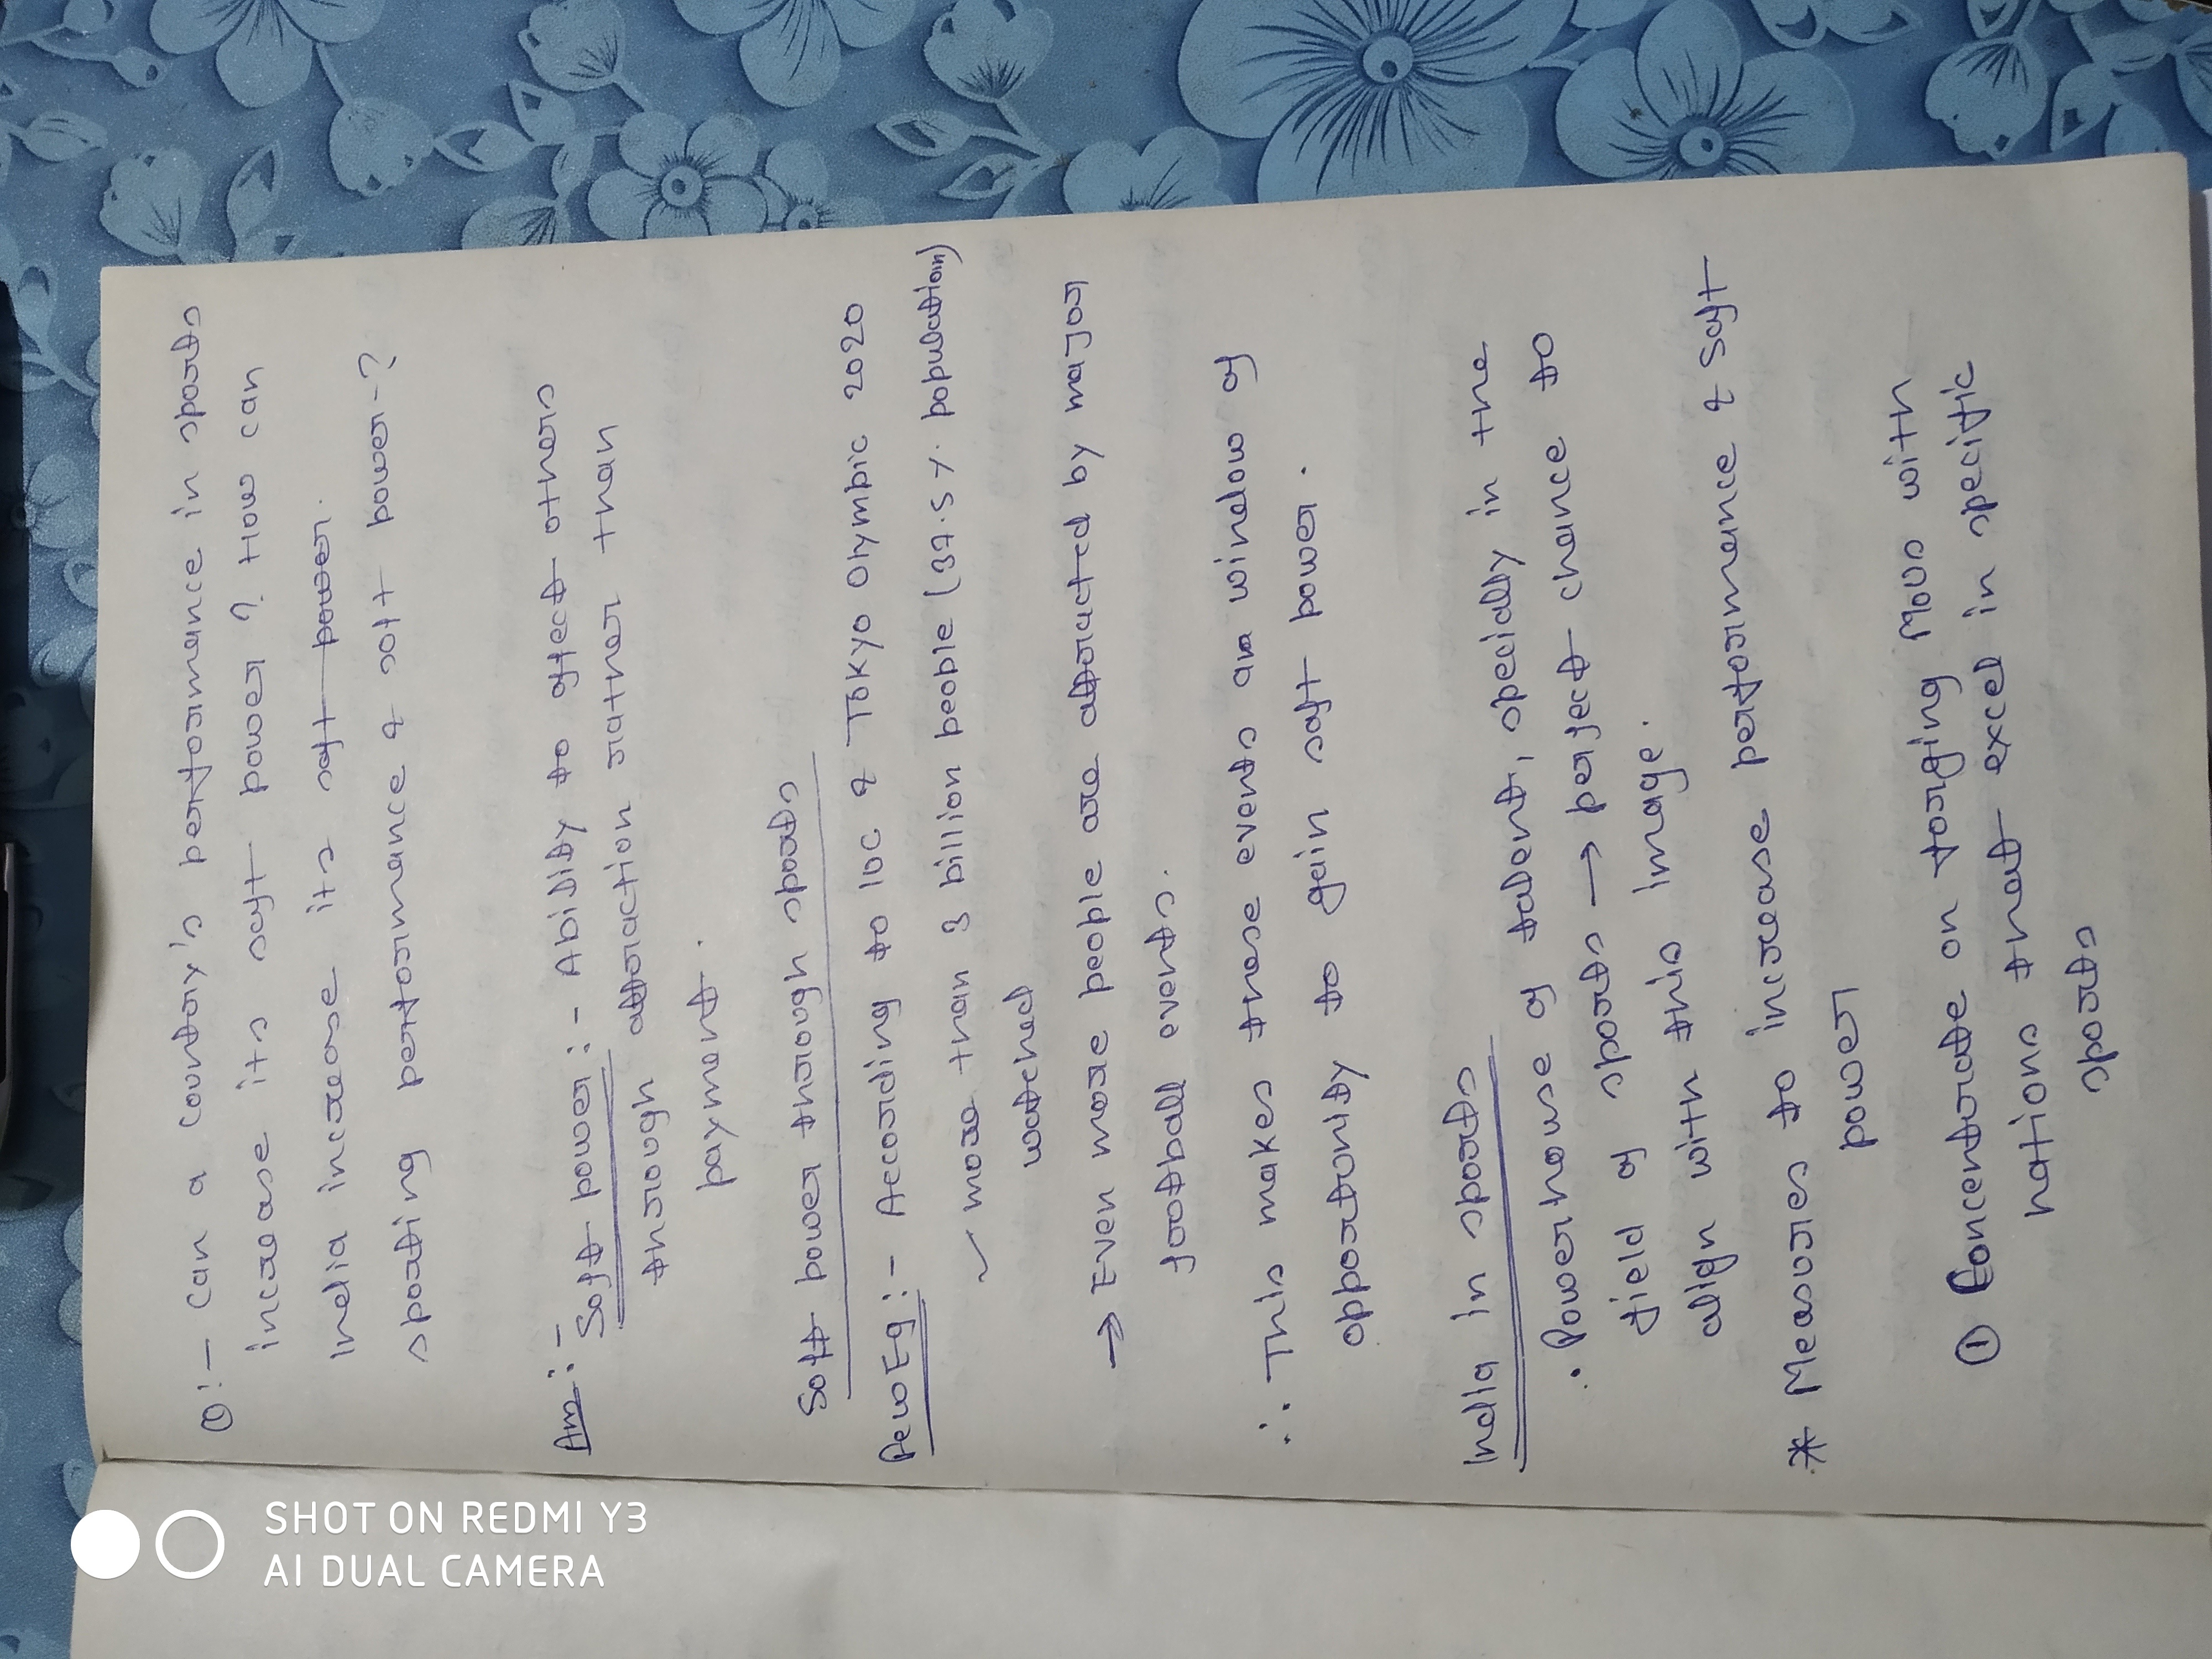 Q:- Can a country's performance in sports
increase its soft power? How can
India increase its soft power.
sporting performance & soft power-?
Ans:-
Soft power:- Ability to affect others
through attraction rather than
payment.
Soft power through sports
Eg:- According to IOC & TOKYO Olympic 2020
✓ more than 3 billion people (37.5 %. population)
watched
→ Even more people are attracted by major
football events.
∴ This makes these events an window of
opportunity to gain soft power.
India in sports
• Powerhouse of talent, specially in the
field of sports → perfect chance to
align with this image.
* Measures to increase performance & soft
power
① Concentrate on forging MOUs with
nations that excel in specific
sports
SHOT ON REDMI Y3
AI DUAL CAMERA